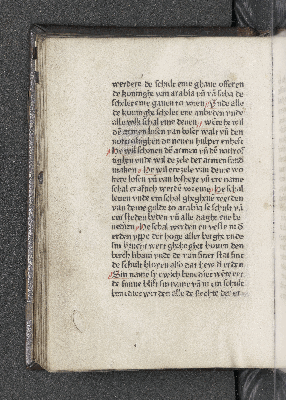 werdere de schulē eme ghaue offeren
de koninghe van arabia vñ vā saba de
schelen eme gauen to voren Unde alle
de koninghe scholen ene anbeden unde
alle volk schal eme denen wēte he wil
dē armen losen van boser walt vñ den
notroftighen de nenen hulper en hefft
He wil schonen dē armen vñ dē notrof
tighen vnde wil de zele der armen salich
maken He wil ere zele van deme wo
kere losen vñ van bosheyt vñ ere name
schal erafticch werdē vor eme He schal
leuen vnde em schal ghegheuē werden
van deme golde to arabia se schulē vā
em steden beden vñ alle daghe ene be
nedien He schal werden en veste vp d
erden vppe der hoge aller berghe vnde
sin vrucht wert ghehoghet bouen den
berch libani vnde de van siner stat sint
de schulē bloyen also dat hoy d erden
Sin name sy ewich benediet wēte vor
de sunne blift sin name vñ in em schulē
benediet werden alle de slechte der er